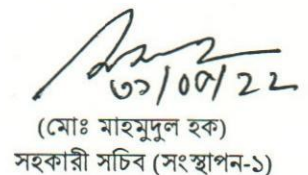 ৩১/০৭/22
(মোঃ মাহমুদুল হক)
সহকারী সচিব (সংস্থাপন-১)